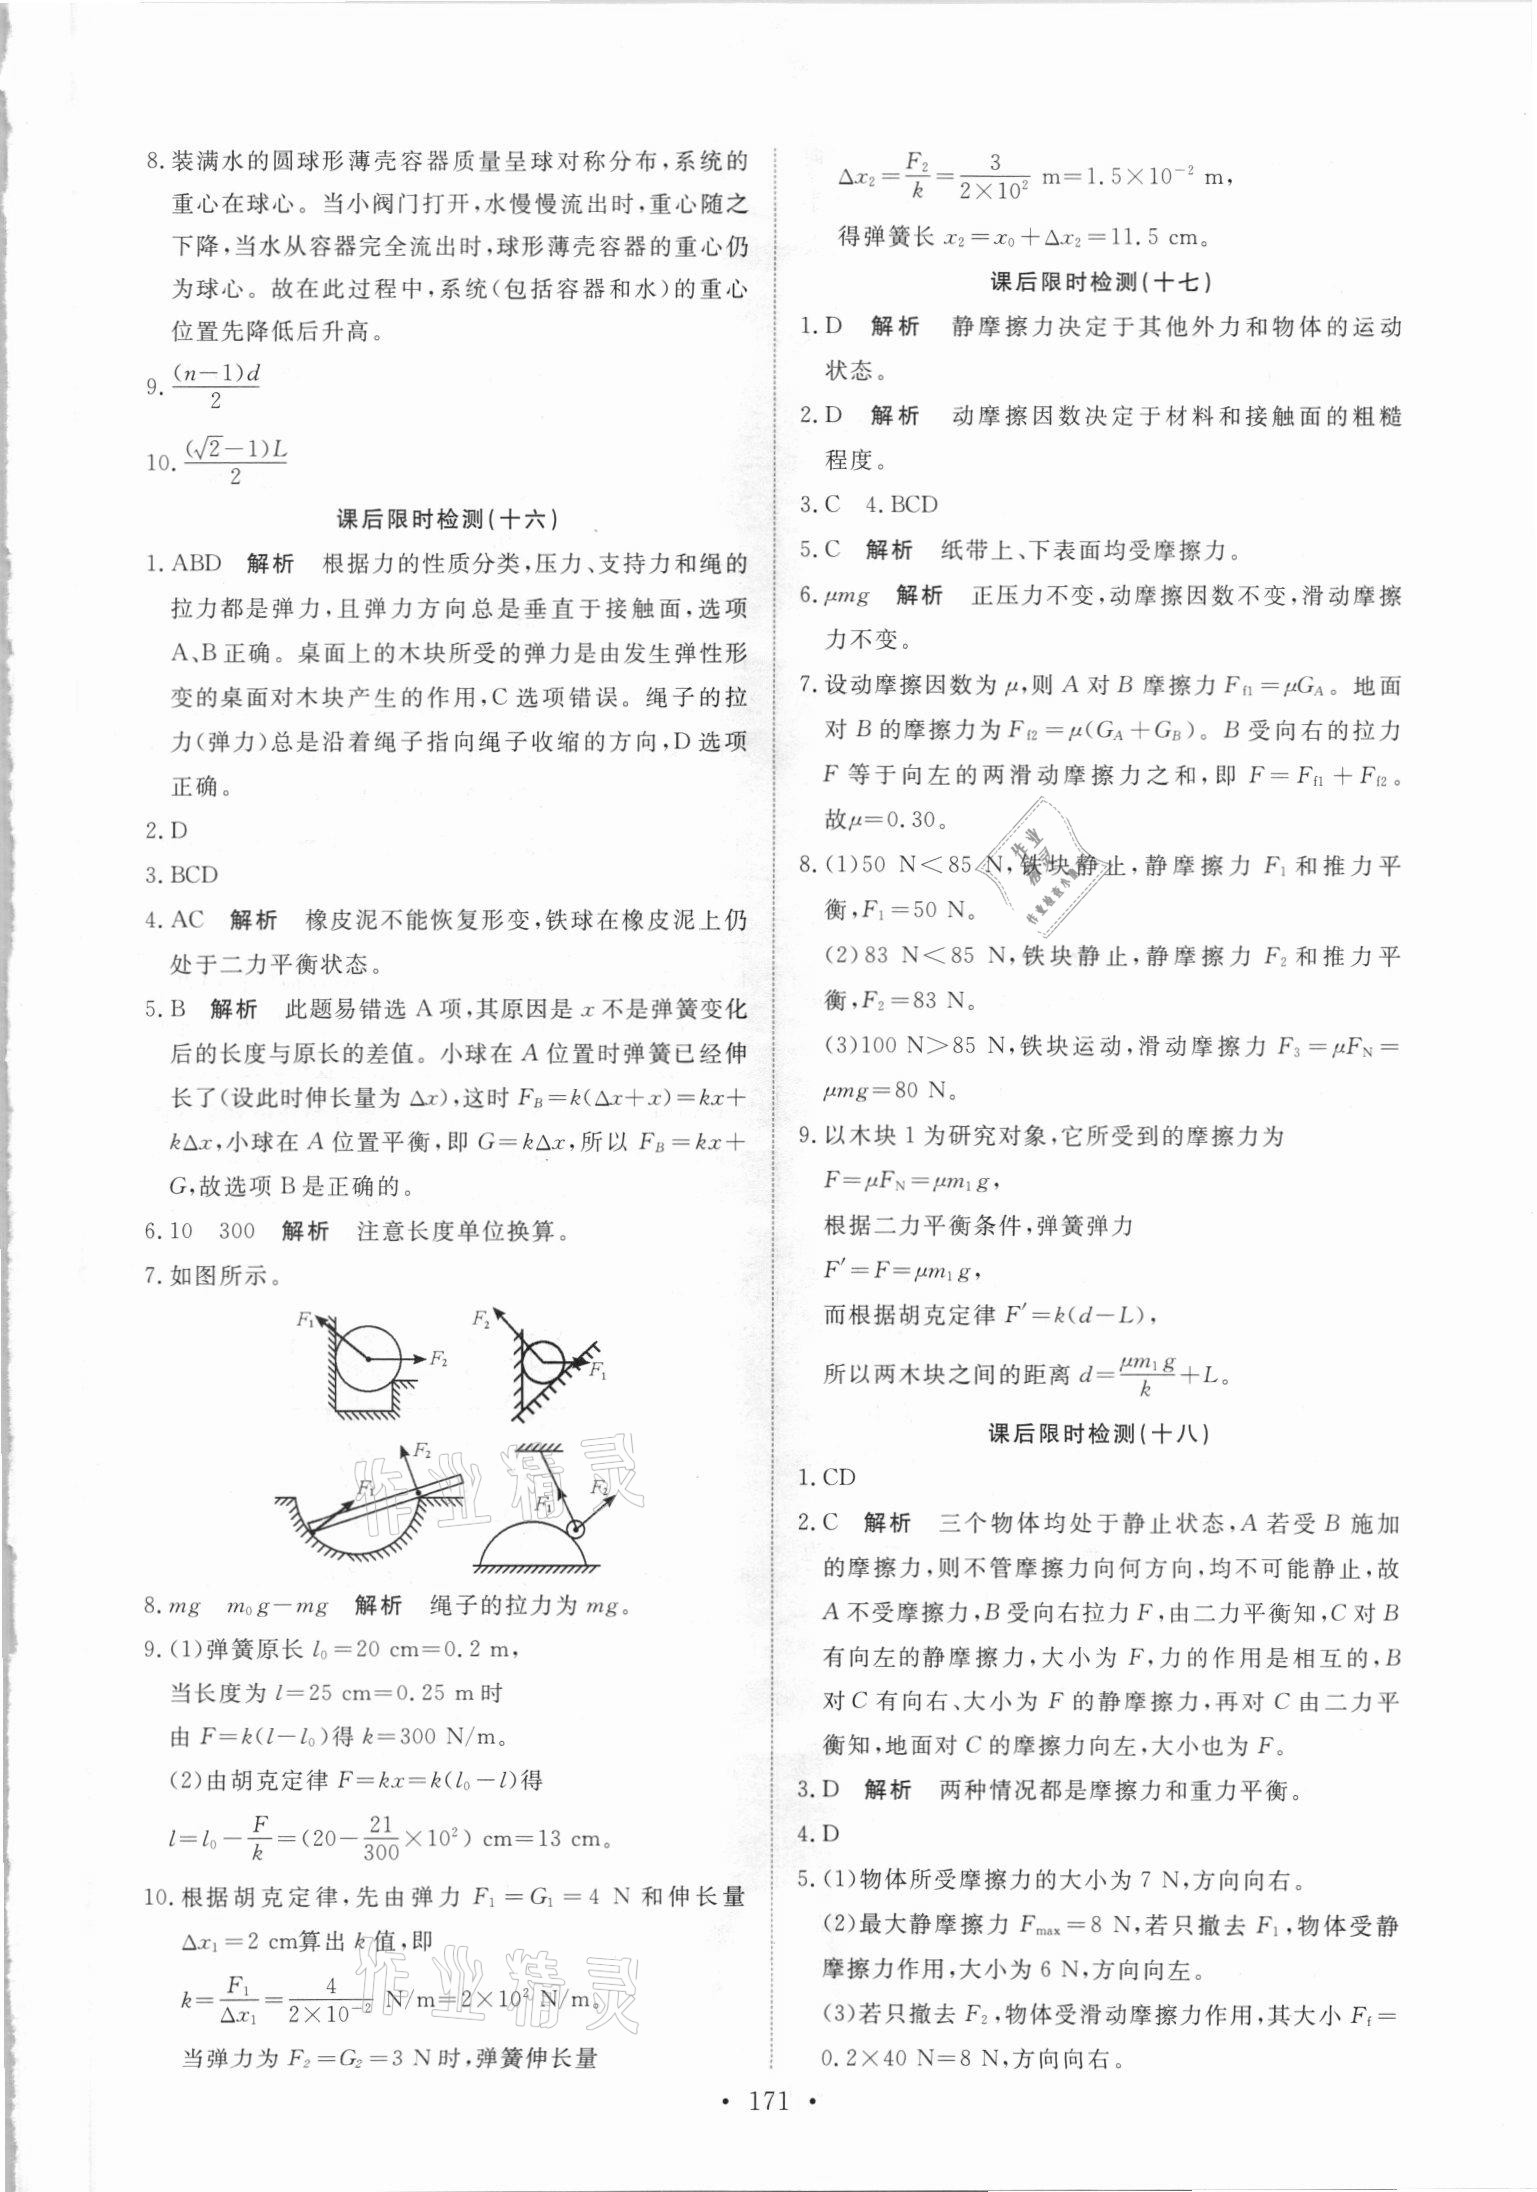 8. 装满水的圆球形薄壳容器质量呈球对称分布,系统的
重心在球心。当小阀门打开,水慢慢流出时,重心随之
下降,当水从容器完全流出时,球形薄壳容器的重心仍
为球心。故在此过程中,系统(包括容器和水)的重心
位置先降低后升高。
9. (n−1)d/2
10. (√2−1)L/2
课后限时检测(十六)
1. ABD 解析 根据力的性质分类,压力、支持力和绳的
拉力都是弹力,且弹力方向总是垂直于接触面,选项
A、B正确。桌面上的木块所受的弹力是由发生弹性形
变的桌面对木块产生的作用,C选项错误。绳子的拉
力(弹力)总是沿着绳子指向绳子收缩的方向,D选项
正确。
2. D
3. BCD
4. AC 解析 橡皮泥不能恢复形变,铁球在橡皮泥上仍
处于二力平衡状态。
5. B 解析 此题易错选 A 项,其原因是 x 不是弹簧变化
后的长度与原长的差值。小球在 A 位置时弹簧已经伸
长了(设此时伸长量为 Δx),这时 F_B=k(Δx+x)=kx+
kΔx,小球在 A 位置平衡,即 G=kΔx,所以 F_B=kx+
G,故选项 B 是正确的。
6. 10 300 解析 注意长度单位换算。
7. 如图所示。
F₁ F₂ F₂ F₁
F₁ F₂ F₁ F₂
8. mg m₀g−mg 解析 绳子的拉力为 mg。
9. (1)弹簧原长 l₀=20 cm=0.2 m,
当长度为 l=25 cm=0.25 m 时
由 F=k(l−l₀)得 k=300 N/m。
(2)由胡克定律 F=kx=k(l₀−l)得
l=l₀−F/k=(20−21/300×10²) cm=13 cm。
10. 根据胡克定律,先由弹力 F₁=G₁=4 N 和伸长量
Δx₁=2 cm算出 k 值,即
k=F₁/Δx₁=4/(2×10⁻²) N/m=2×10² N/m。
当弹力为 F₂=G₂=3 N 时,弹簧伸长量
Δx₂=F₂/k=3/(2×10²) m=1.5×10⁻² m,
得弹簧长 x₂=x₀+Δx₂=11.5 cm。
课后限时检测(十七)
1. D 解析 静摩擦力决定于其他外力和物体的运动
状态。
2. D 解析 动摩擦因数决定于材料和接触面的粗糙
程度。
3. C 4. BCD
5. C 解析 纸带上、下表面均受摩擦力。
6. μmg 解析 正压力不变,动摩擦因数不变,滑动摩擦
力不变。
7. 设动摩擦因数为 μ,则 A 对 B 摩擦力 F_f1=μG_A。地面
对 B 的摩擦力为 F_f2=μ(G_A+G_B)。B 受向右的拉力
F 等于向左的两滑动摩擦力之和,即 F=F_f1+F_f2。
故μ=0.30。
8. (1)50 N<85 N,铁块静止,静摩擦力 F₁ 和推力平
衡,F₁=50 N。
(2)83 N<85 N,铁块静止,静摩擦力 F₂ 和推力平
衡,F₂=83 N。
(3)100 N>85 N,铁块运动,滑动摩擦力 F₃=μF_N=
μmg=80 N。
9. 以木块 1 为研究对象,它所受到的摩擦力为
F=μF_N=μm₁g,
根据二力平衡条件,弹簧弹力
F′=F=μm₁g,
而根据胡克定律 F′=k(d−L),
所以两木块之间的距离 d=μm₁g/k+L。
课后限时检测(十八)
1. CD
2. C 解析 三个物体均处于静止状态,A 若受 B 施加
的摩擦力,则不管摩擦力向何方向,均不可能静止,故
A 不受摩擦力,B 受向右拉力 F,由二力平衡知,C 对 B
有向左的静摩擦力,大小为 F,力的作用是相互的,B
对 C 有向右、大小为 F 的静摩擦力,再对 C 由二力平
衡知,地面对 C 的摩擦力向左,大小也为 F。
3. D 解析 两种情况都是摩擦力和重力平衡。
4. D
5. (1)物体所受摩擦力的大小为 7 N,方向向右。
(2)最大静摩擦力 F_max=8 N,若只撤去 F₁,物体受静
摩擦力作用,大小为 6 N,方向向左。
(3)若只撤去 F₂,物体受滑动摩擦力作用,其大小 F_f=
0.2×40 N=8 N,方向向右。
作业精灵
作业精灵
· 171 ·